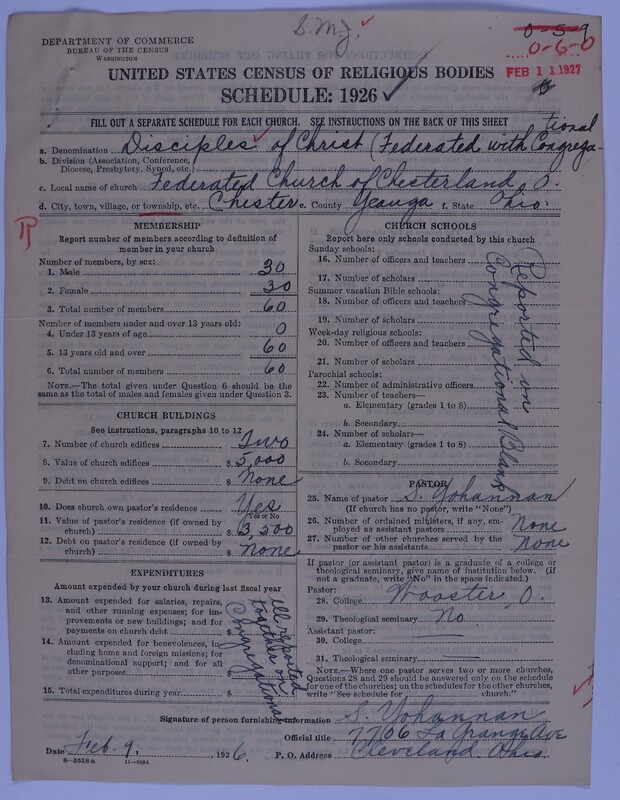 S.M.J.
0-5-9
0-6-0
DEPARTMENT OF COMMERCE
BUREAU OF THE CENSUS
WASHINGTON
FEB 11 1927
UNITED STATES CENSUS OF RELIGIOUS BODIES
SCHEDULE: 1926
FILL OUT A SEPARATE SCHEDULE FOR EACH CHURCH. SEE INSTRUCTIONS ON THE BACK OF THIS SHEET
a. Denomination Disciples of Christ (Federated with Congregational
b. Division (Association, Conference, Diocese, Presbytery, Synod, etc.)
c. Local name of church Federated Church of Chesterland, O.
d. City, town, village, or township, etc. Chester e. County Geauga f. State Ohio
MEMBERSHIP
Report number of members according to definition of
member in your church
Number of members, by sex:
1. Male 30
2. Female 30
3. Total number of members 60
Number of members under and over 13 years old:
4. Under 13 years of age 0
5. 13 years old and over 60
6. Total number of members 60
NOTE.—The total given under Question 6 should be the
same as the total of males and females given under Question 3.
CHURCH BUILDINGS
See instructions, paragraphs 10 to 12
7. Number of church edifices Two
8. Value of church edifices $ 5,000
9. Debt on church edifices $ None
10. Does church own pastor's residence? Yes
Yes or No
11. Value of pastor's residence (if owned by
church) $ 3,500
12. Debt on pastor's residence (if owned by
church) $ None
EXPENDITURES
Amount expended by your church during last fiscal year
13. Amount expended for salaries, repairs,
and other running expenses; for im-
provements or new buildings; and for
payments on church debt $
14. Amount expended for benevolences, in-
cluding home and foreign missions; for
denominational support; and for all
other purposes $
15. Total expenditures during year $
All reported
together on
Congregational
CHURCH SCHOOLS
Report here only schools conducted by this church
Sunday schools:
16. Number of officers and teachers
17. Number of scholars
Summer vacation Bible schools:
18. Number of officers and teachers
19. Number of scholars
Week-day religious schools:
20. Number of officers and teachers
21. Number of scholars
Parochial schools:
22. Number of administrative officers
23. Number of teachers—
a. Elementary (grades 1 to 8)
b. Secondary
24. Number of scholars—
a. Elementary (grades 1 to 8)
b. Secondary
Reported on
Congregational Blank
PASTOR
25. Name of pastor S. Yohannan
(If church has no pastor, write "None")
26. Number of ordained ministers, if any, em-
ployed as assistant pastors None
27. Number of other churches served by the
pastor or his assistants None
If pastor (or assistant pastor) is a graduate of a college or
theological seminary, give name of institution below. (if
not a graduate, write "No" in the space indicated.)
Pastor:
28. College Wooster, O.
29. Theological seminary No
Assistant pastor:
30. College
31. Theological seminary
NOTE.—Where one pastor serves two or more churches,
Questions 28 and 29 should be answered only on the schedule
for one of the churches; on the schedules for the other churches,
write "See schedule for church."
Signature of person furnishing information S. Yohannan
Official title 7706 La Grange Ave
Date Feb. 9, 1926. P. O. Address Cleveland Ohio
8—5518 a 11—9084